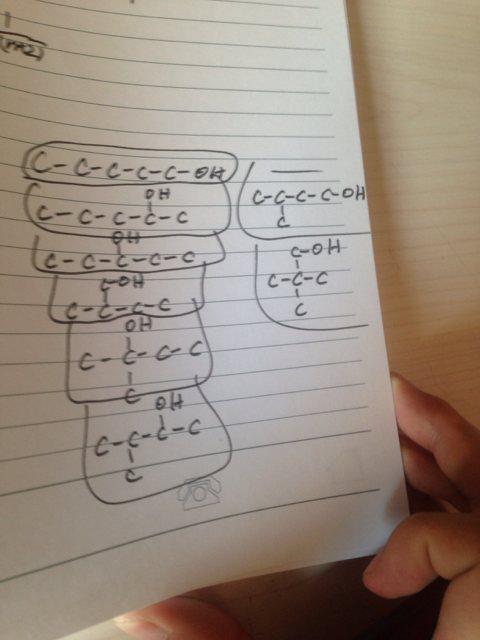 C-C-C-C-C-OH
OH
C-C-C-C-C
OH
C-C-C-C-C
C-OH
C-C-C-C
OH
C-C-C-C
C
OH
C-C-C-C
C
C-C-C-C-OH
C
C-OH
C-C-C
C